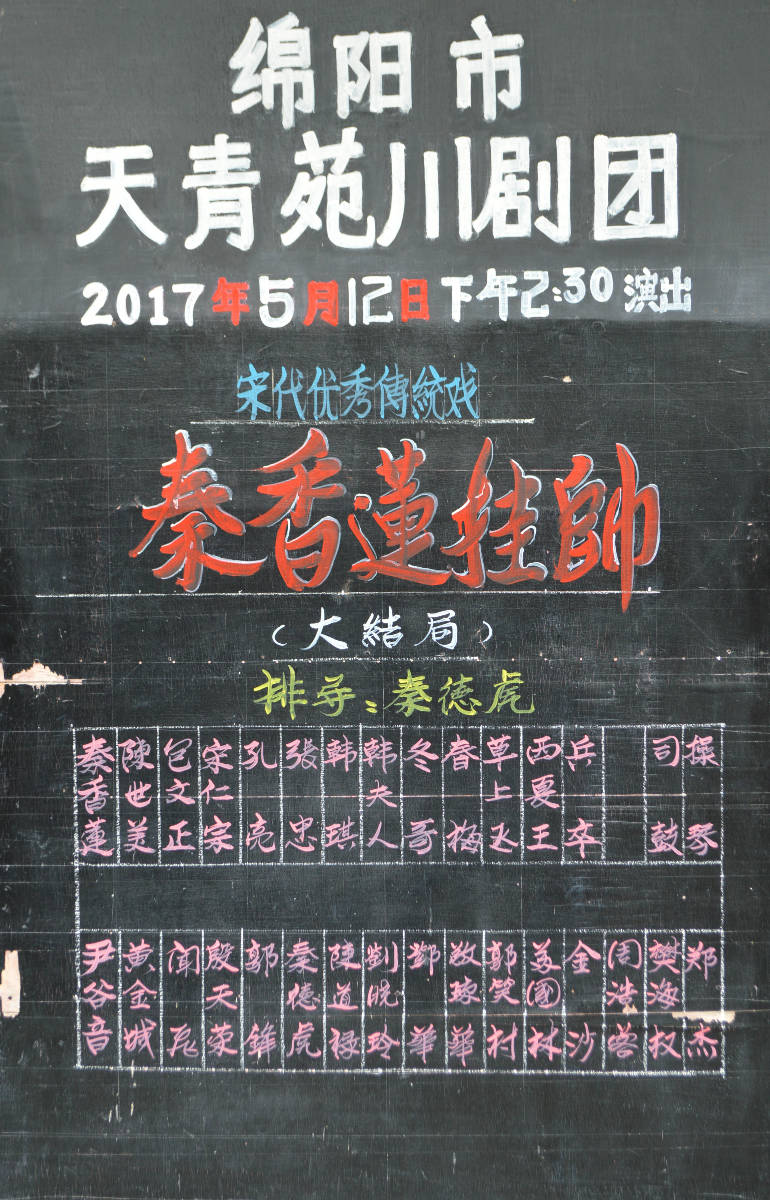 绵阳市
天青苑川剧团
2017年5月12日下午2:30演出
宋代优秀傳統戏
秦香蓮挂帥
(大結局)
排导:秦德虎
秦香蓮 陳世美 包文正 宋仁宗 孔亮 張忠 韩琪 韩夫人 冬哥 春梅 草上飞 西夏王 兵卒 司鼓 操琴
尹谷音 黄金城 闻 殷天荣 郭鋒 秦德虎 陳道禄 劉晓玲 鄧華 敬琼華 郭笑村 姜國林 金沙 周浩 樊海权 郑杰